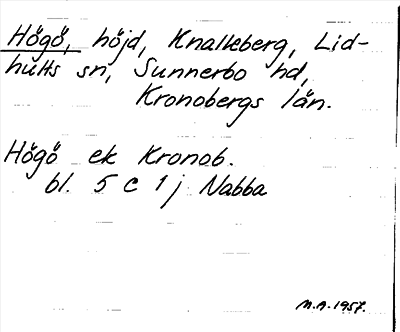 Högö, höjd, Knalleberg, Lid-
hults sn, Sunnerbo hd,
Kronobergs län.
Högö ek Kronob.
bl. 5 C 1 j Nabba
M.A. 1957.